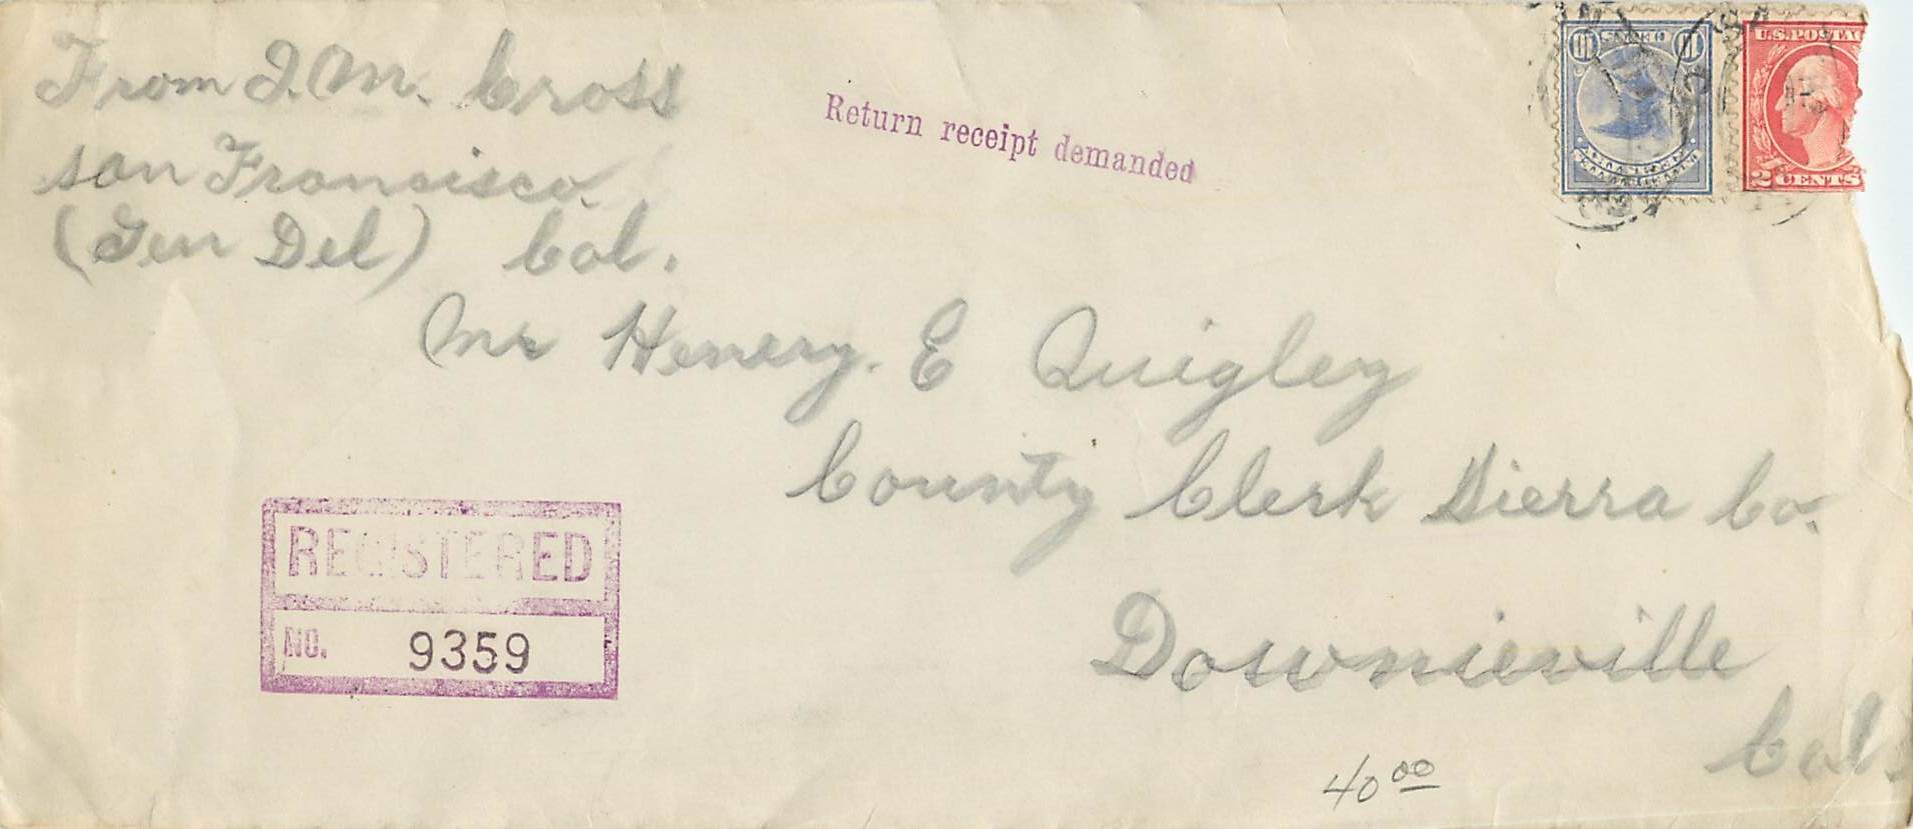 From J. M. Cross
San Francisco.
(Gen Del) Cal.
Return receipt demanded
10 CENTS 10
U.S. POSTAG
2 CENTS
Mr Henery. E Quigley
County Clerk Sierra Co.
Downieville
Cal.
REGISTERED
NO. 9359
40 00